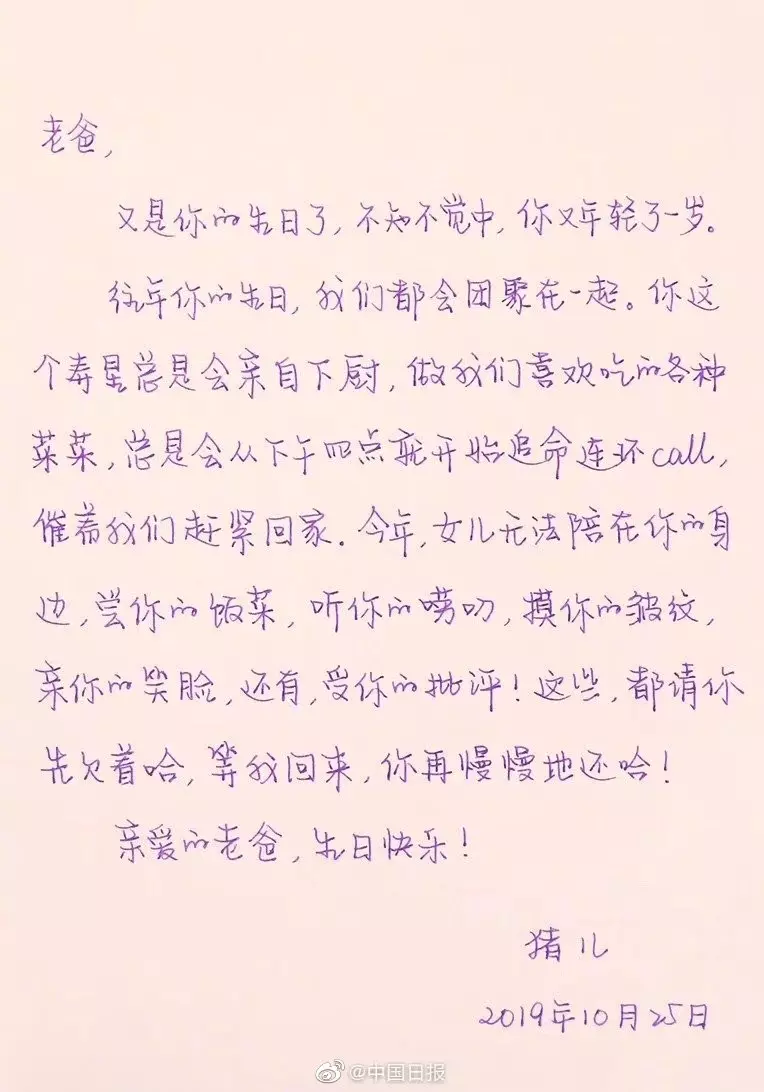 老爸,
又是你的生日了,不知不觉中,你又年轻了一岁。
往年你的生日,我们都会团聚在一起。你这
个寿星总是会亲自下厨,做我们喜欢吃的各种
菜菜,总是会从下午四点就开始追命连环call,
催着我们赶紧回家.今年,女儿无法陪在你的身
边,尝你的饭菜,听你的唠叨,摸你的皱纹,
亲你的笑脸,还有,受你的批评!这些,都请你
先欠着哈,等我回来,你再慢慢地还哈!
亲爱的老爸,生日快乐!
猪儿
2019年10月25日
@中国日报